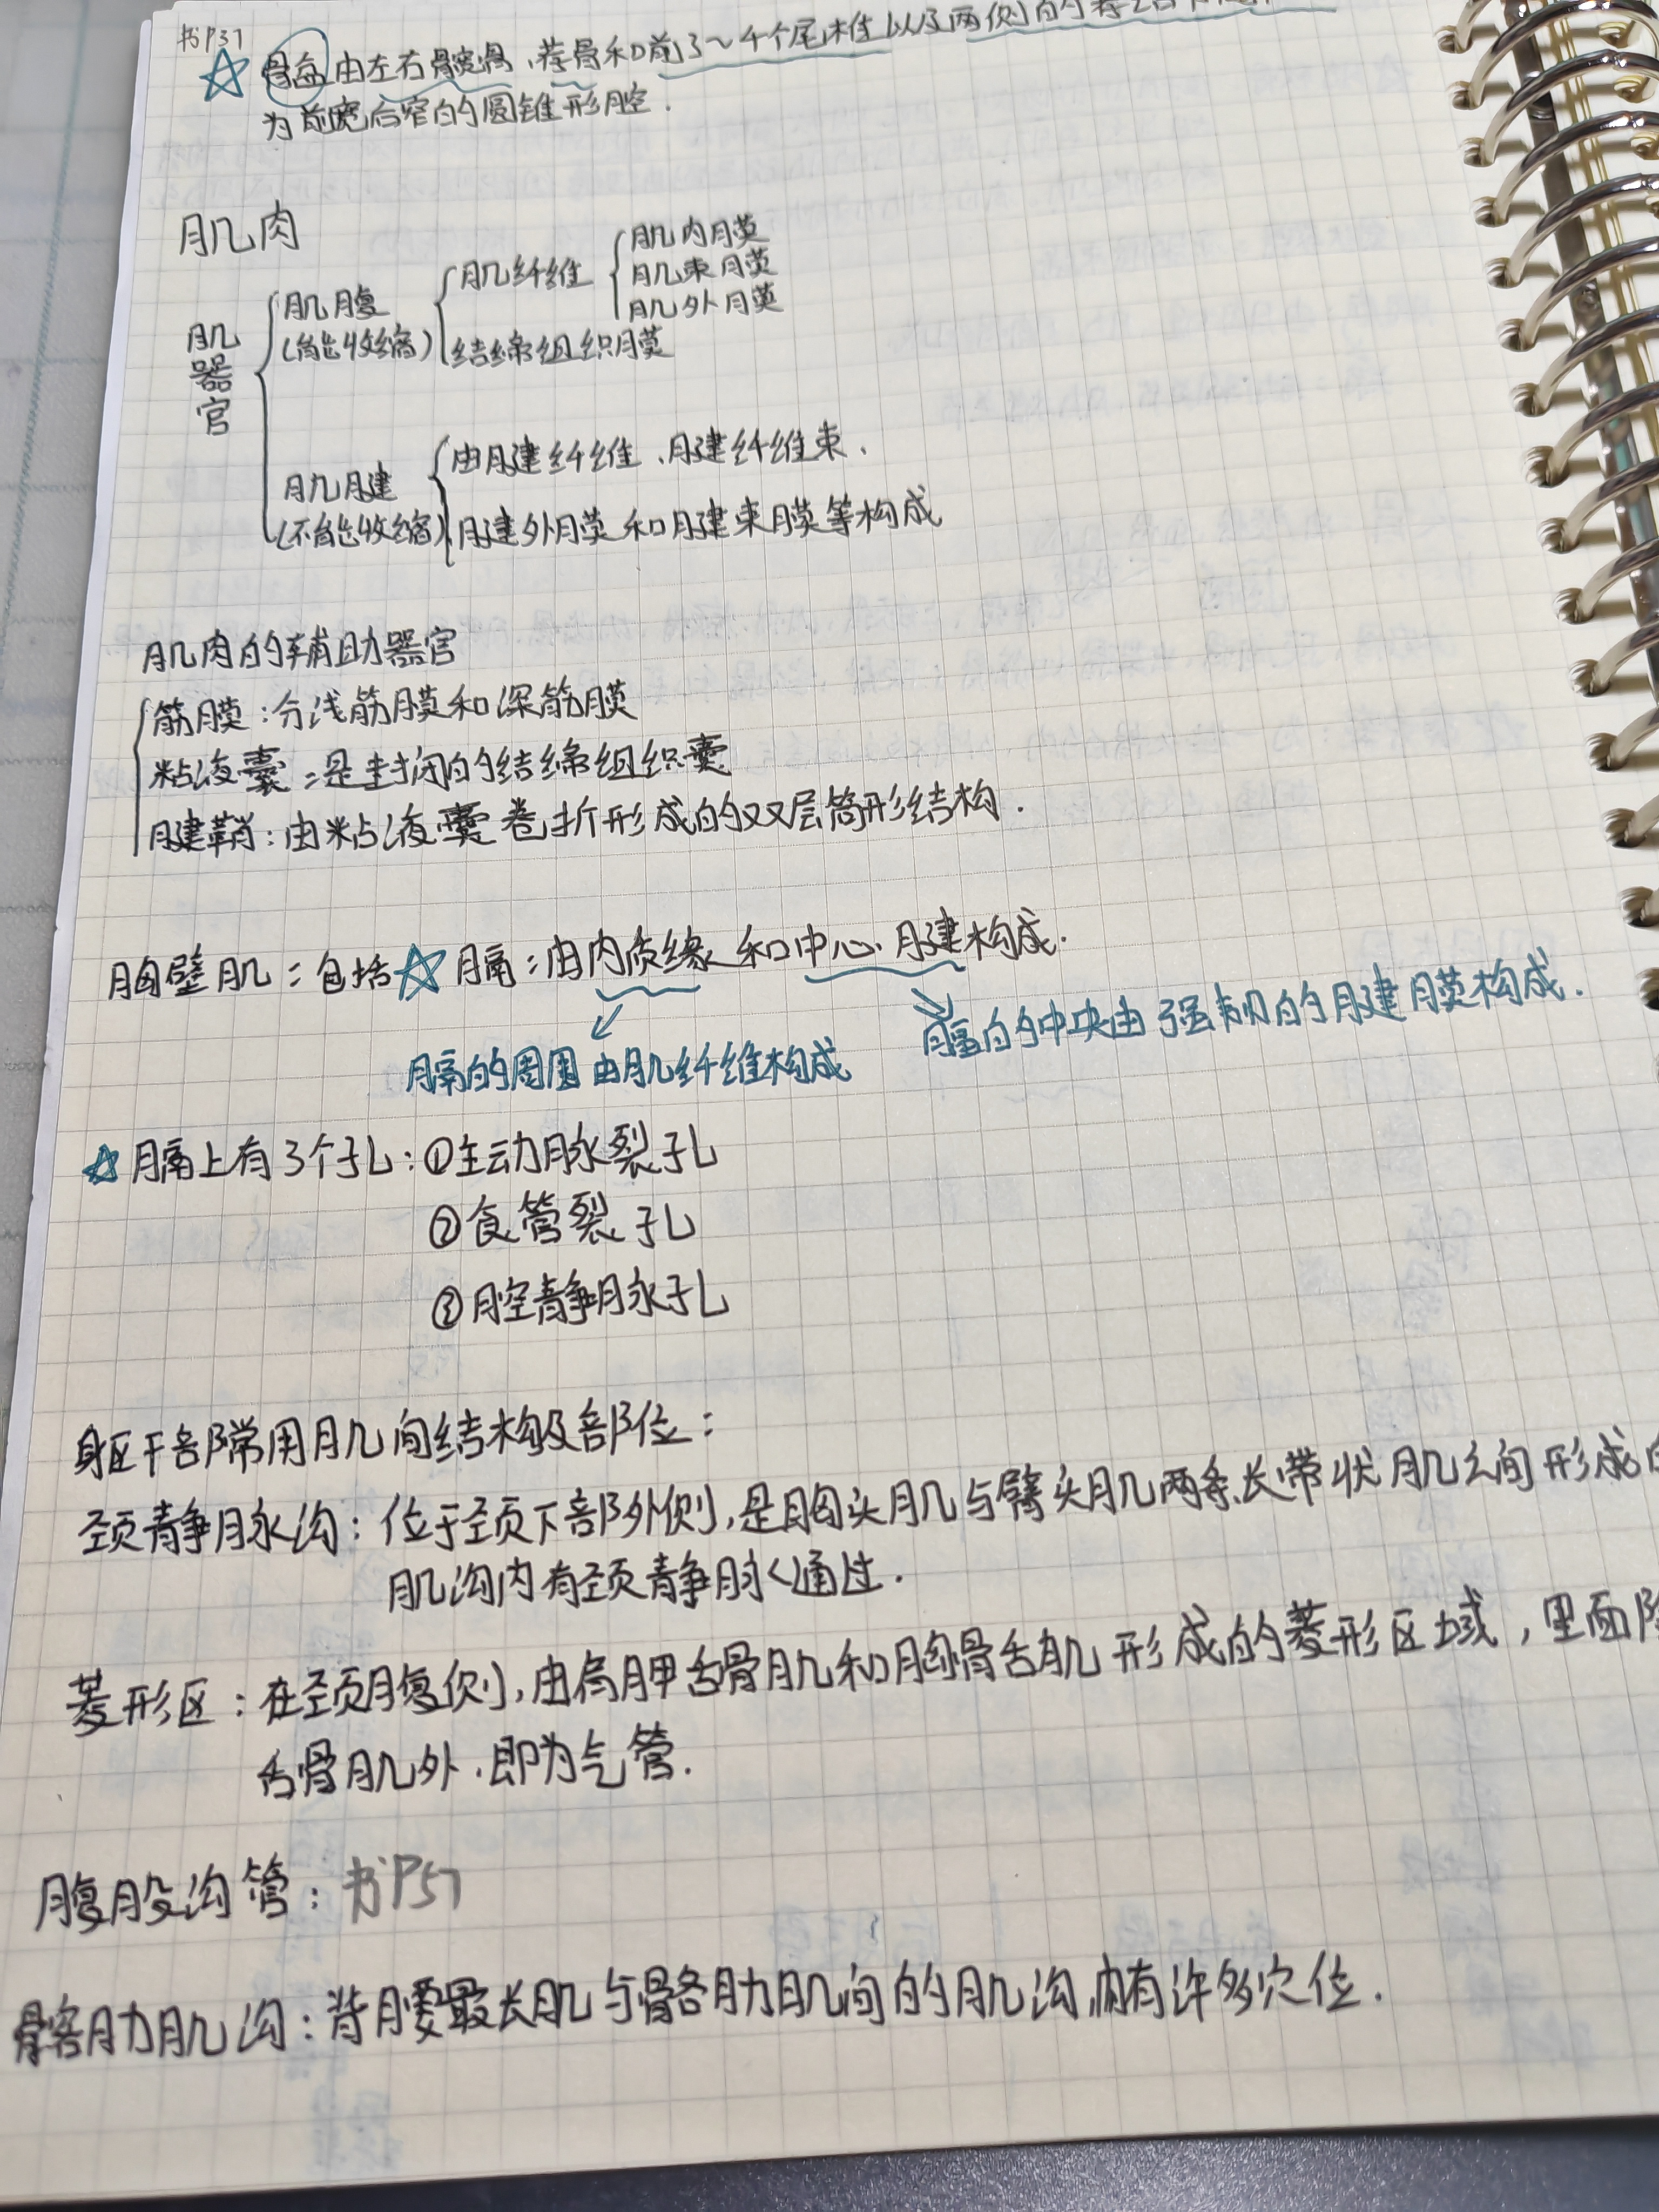 书P37
骨盆由左右髋骨、荐骨和前3~4个尾椎以及两侧的荐结
为前宽后窄的圆锥形腔.
肌肉
肌器官
肌腹
(能收缩)
肌纤维
肌内膜
肌束膜
肌外膜
结缔组织膜
肌腱
(不能收缩)
由腱纤维、腱纤维束、
腱外膜和腱束膜等构成
肌肉的辅助器官
筋膜:分浅筋膜和深筋膜
粘液囊:是封闭的结缔组织囊
腱鞘:由粘液囊卷折形成的双层筒形结构.
胸壁肌:包括☆膈:由内质缘和中心腱构成.
膈的周围由肌纤维构成
膈的中央由强韧的腱膜构成.
☆膈上有3个孔:①主动脉裂孔
②食管裂孔
③腔静脉孔
躯干部常用肌间结构及部位:
颈静脉沟:位于颈下部外侧,是胸头肌与臂头肌两条长带状肌之间形成的
肌沟内有颈静脉通过.
菱形区:在颈腹侧,由肩胛舌骨肌和胸骨舌肌形成的菱形区域,里面除
舌骨肌外、即为气管.
腹股沟管:书P57
髂肋肌沟:背腰最长肌与髂肋肌间的肌沟,内有许多穴位.